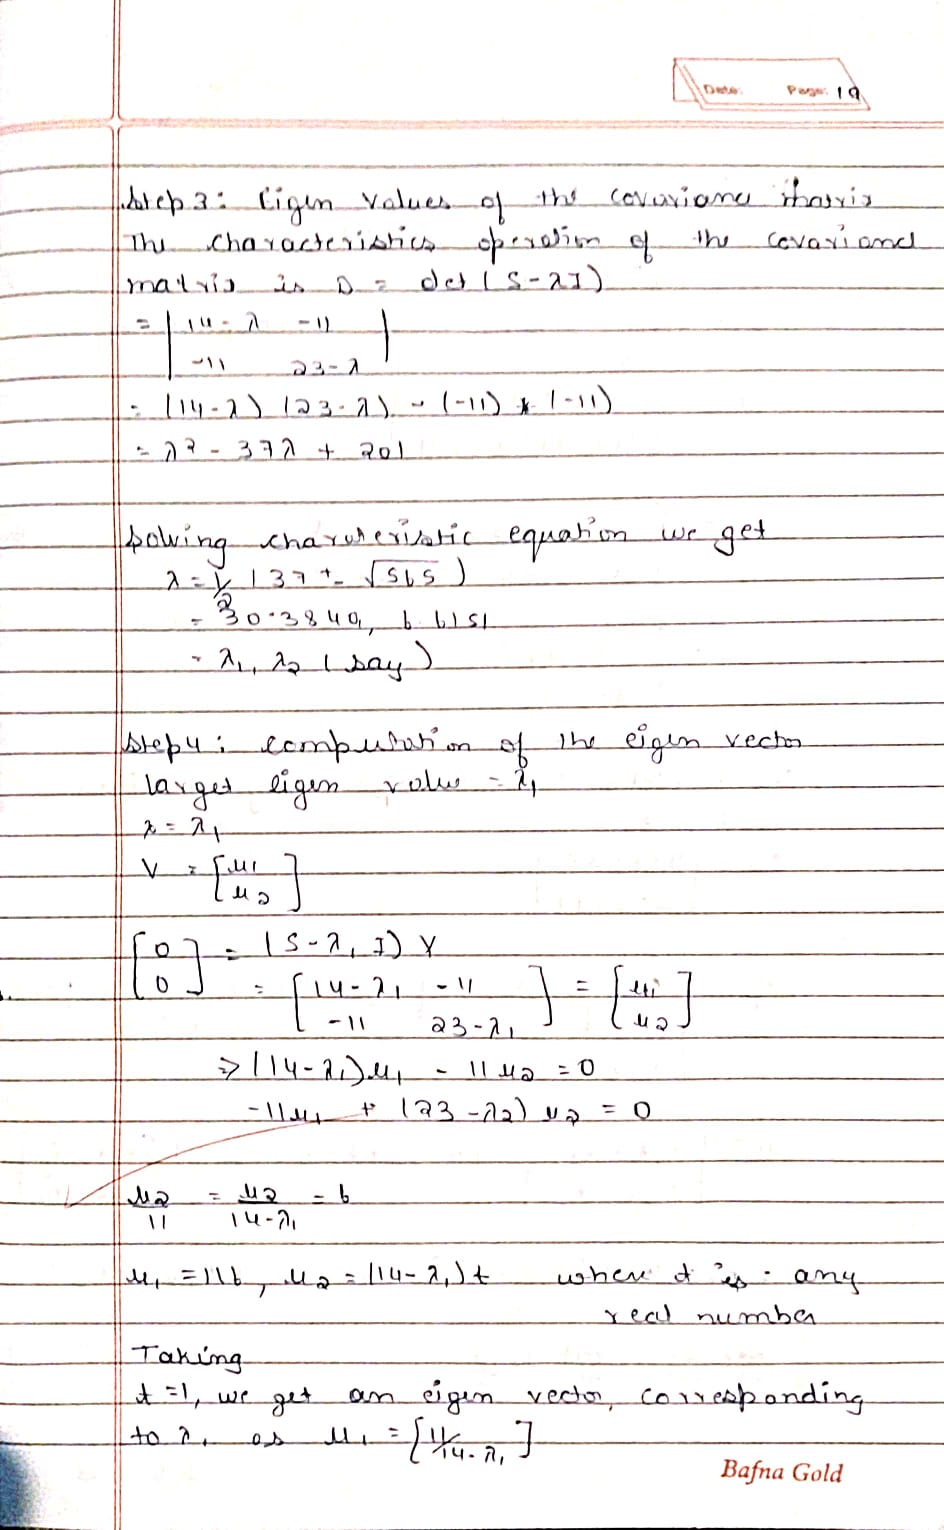 Date: Page: 19
Step 3: Eigen values of the covariance
The characteristics of the covariance
matrix is D = det (S-λI)
= | 14-λ -11 |
| -11 23-λ |
= (14-λ) (23-λ) - (-11) * (-11)
= λ2 - 37λ + 201
solving equation we get
λ = 1/2 (37 +- √565)
= 30.3849, 6.6151
= λ1, λ2 (say)
Step 4: computation of the eigen vector
larget eigen value = λ1
λ = λ1
V = [ u1
u2 ]
[ 0 ] = (S-λ1 I) V
[ 0 ] = [ 14-λ1 -11 ] = [ u1 ]
[ -11 23-λ1 ] [ u2 ]
⇒ (14-λ1)u1 - 11 u2 = 0
-11u1 + (23-λ2) u2 = 0
u2/11 = u2/14-λ1 = t
u1 = 11t, u2 = (14-λ1)t where t is any
real number
Taking
t=1, we get an eigen vector, corresponding
to λ1 as u1 = [11/14-λ1]
Bafna Gold